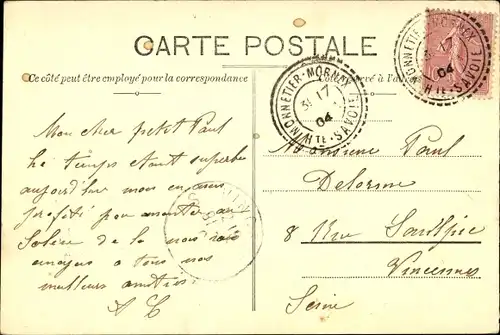 CARTE POSTALE
Ce côté peut être employé pour la correspondance
Côté réservé à l'adresse
MONNETIER-MORNEX
17
04
HTE-SAVOIE
MONNETIER-MORNEX
31 17
04
HTE-SAVOIE
Mon cher petit Paul
le temps étant superbe
aujourd'hui nous en avons
profité pour monter au
Salève de là nous
envoyons à tous nos
meilleurs amitiés
A C
Monsieur Paul
Delorme
8 Rue
Vincennes
Seine